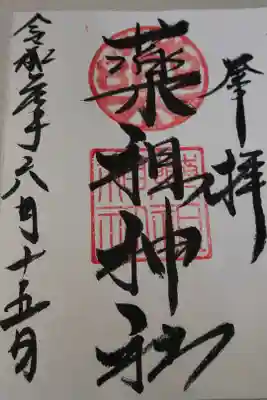 奉拝
薬祖神社
令和元年六月十五日